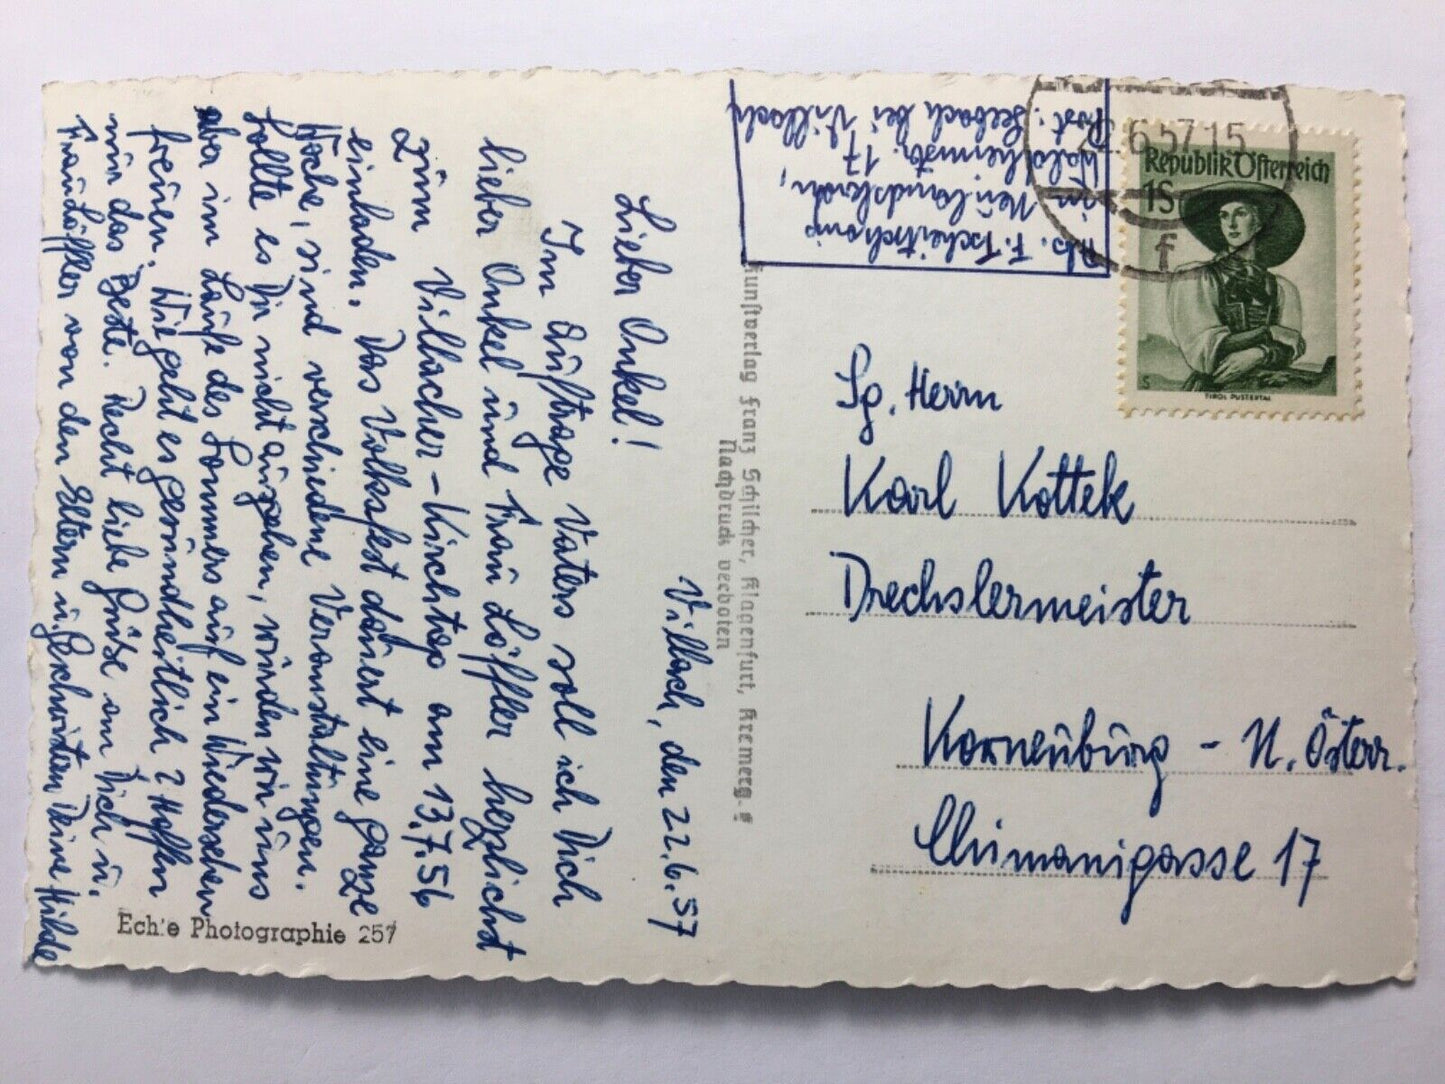 Villach, den 22.6.57
Lieber Onkel!
Im Auftrage Vaters soll ich Dich
lieber Onkel und Frau Löffler herzlichst
zum Villacher-Kirchtag am 13.7.56
einladen. Das Volksfest dauert eine ganze
Woche, sind verschiedene Veranstaltungen.
Sollte es Dir nicht ausgehen, würden wir uns
aber im Laufe des Sommers auf ein Wiedersehen
freuen. Wie geht es gesundheitlich? Hoffen
nur das Beste. Recht liebe Grüße an Dich u.
Frau Löffler von den Eltern u. Geschwistern Deine Hilde
Echte Photographie 257
Kunstverlag Franz Schilcher, Klagenfurt, Kremerg. 8
Nachdruck verboten
Abs. F. Tscheitschonig
in Neulandskron,
Waldheimstr. 17
Post: Seebach bei Villach
22.6.57 15
f
Republik Österreich
1S
S
TIROL PUSTERTAL
Sg. Herrn
Karl Kottek
Drechslermeister
Korneuburg - N. Österr.
17